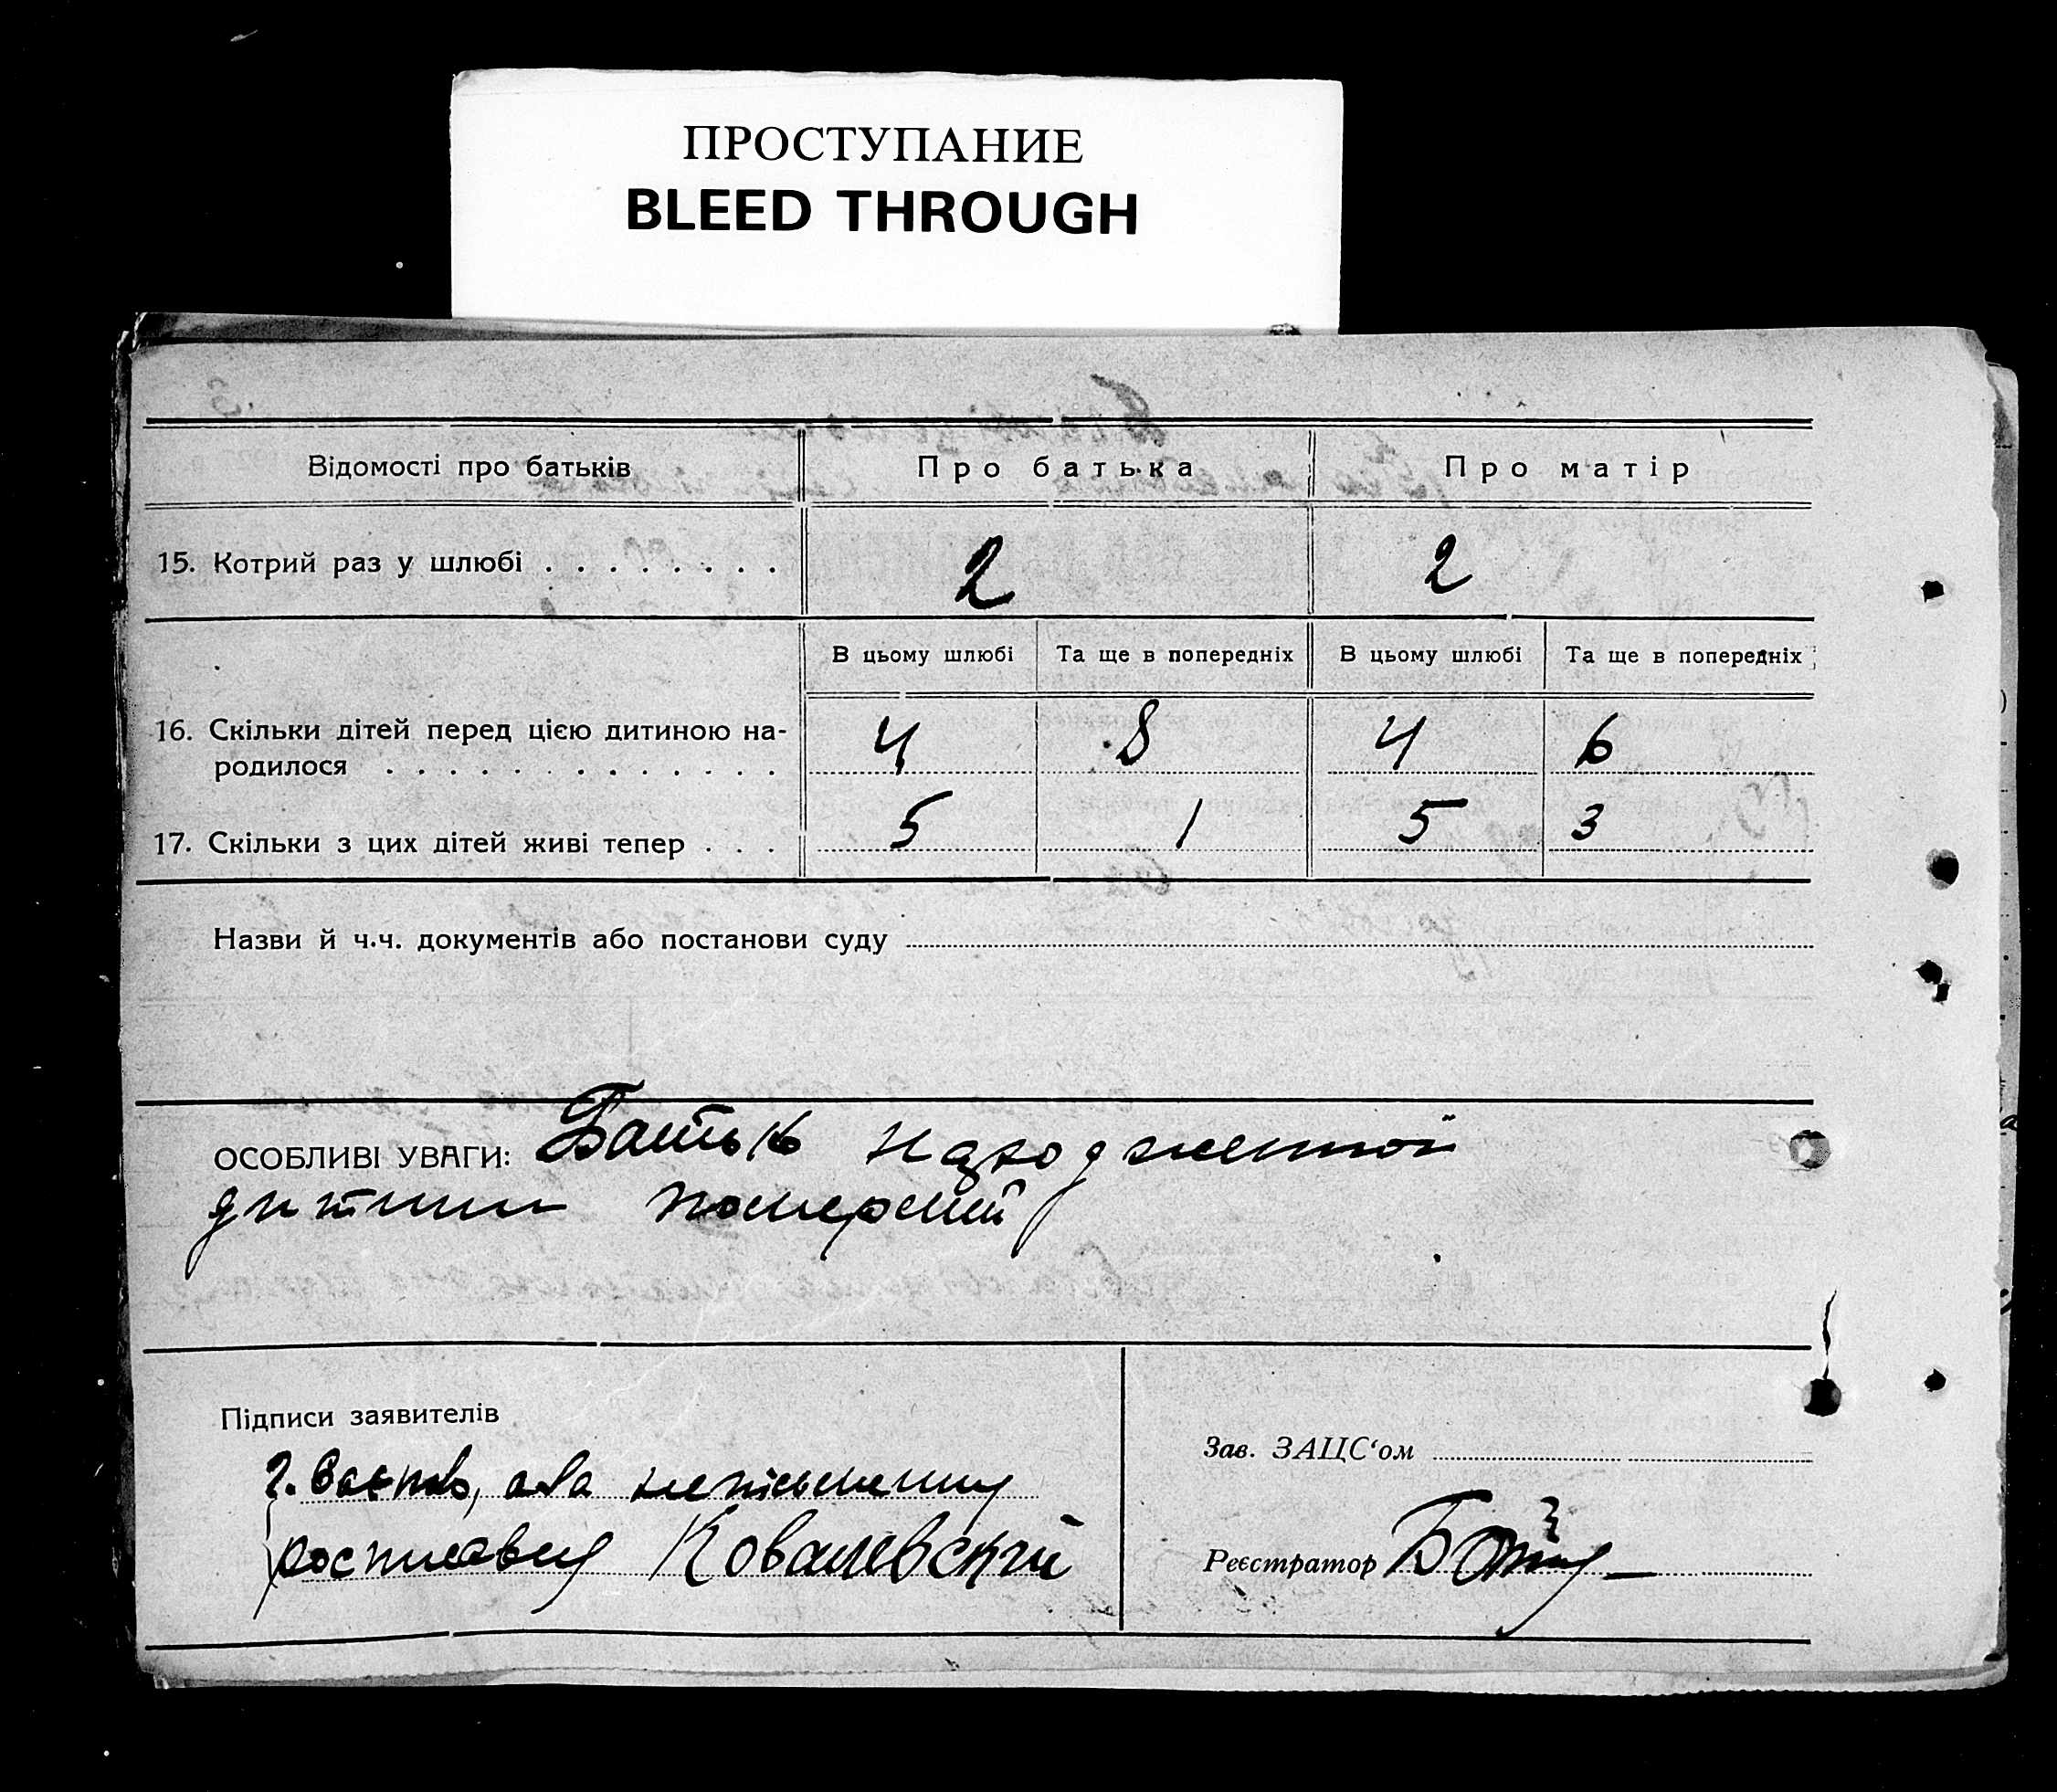 ПРОСТУПАНИЕ
BLEED THROUGH
Відомості про батьків Про батька Про матір
15. Котрий раз у шлюбі . . . . . . . . 2 2
В цьому шлюбі Та ще в попередніх В цьому шлюбі Та ще в попередніх
16. Скільки дітей перед цією дитиною на-
родилося . . . . . . . . . . . . . 4 8 4 6
17. Скільки з цих дітей живі тепер . . . 5 1 5 3
Назви й ч.ч. документів або постанови суду
ОСОБЛИВІ УВАГИ: Батько народженної
дитини померший
Підписи заявителів
Зав. ЗАЦС‘ом
а за
Ковалевский
Реєстратор